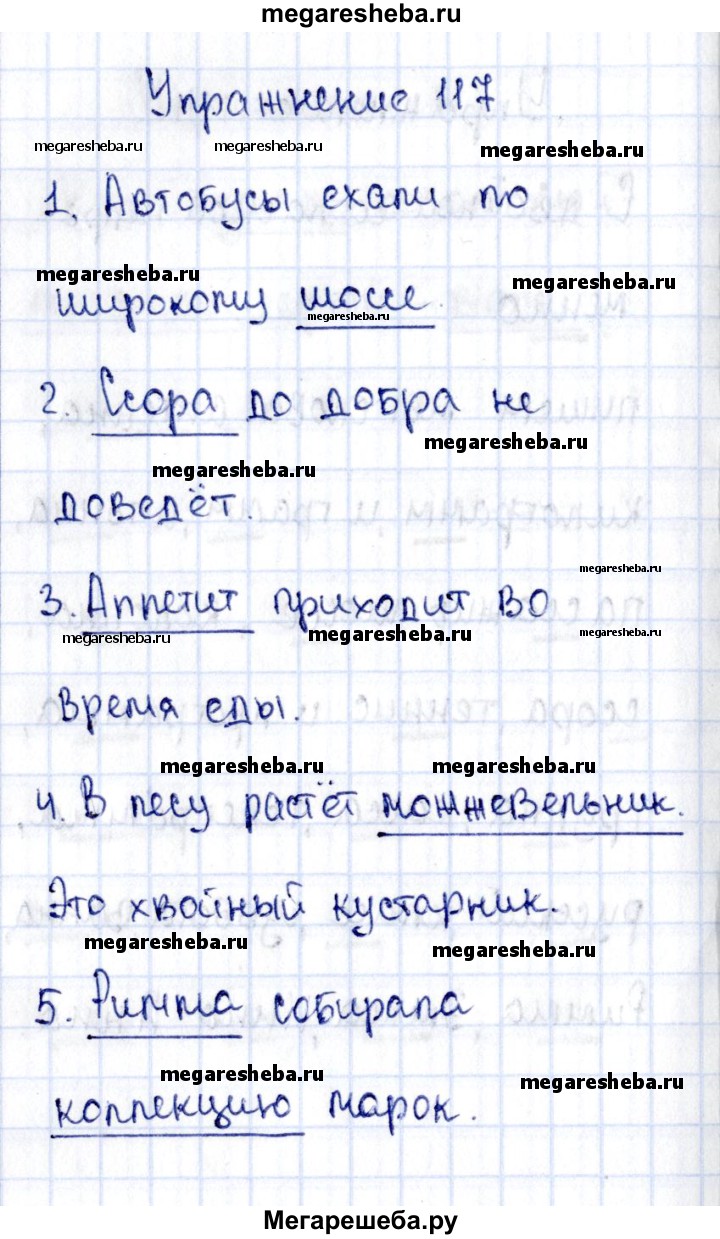 megaresheba.ru
Упражнение 117
megaresheba.ru megaresheba.ru megaresheba.ru
1. Автобусы ехали по
megaresheba.ru megaresheba.ru
широкому шоссе.
megaresheba.ru
2. Ссора до добра не
megaresheba.ru
megaresheba.ru
доведёт.
megaresheba.ru
3. Аппетит приходит во
megaresheba.ru megaresheba.ru megaresheba.ru
время еды.
megaresheba.ru megaresheba.ru
4. В лесу растёт можжевельник.
megaresheba.ru
Это хвойный кустарник.
megaresheba.ru megaresheba.ru
5. Римма собирала
megaresheba.ru megaresheba.ru
коллекцию марок.
Мегарешеба.ру